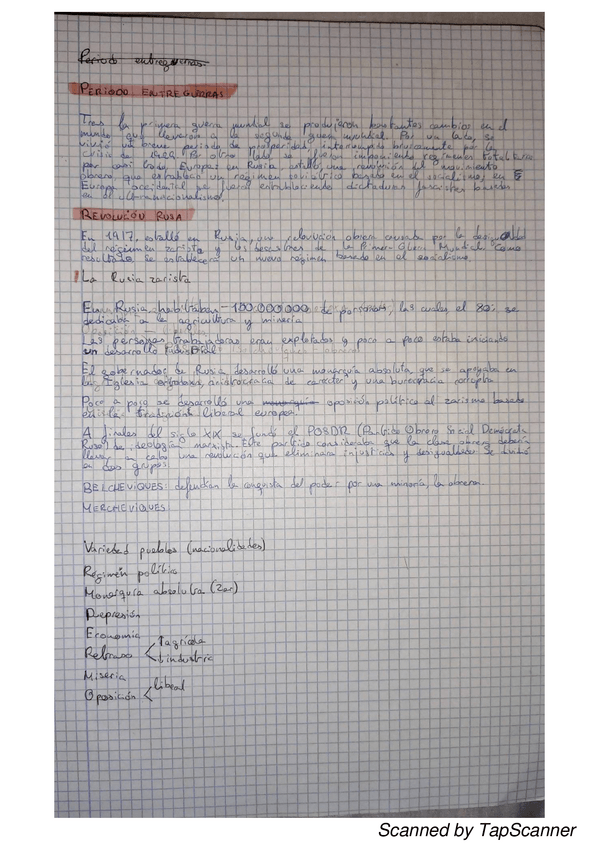 Periodo entreguerras
PERIODO ENTREGUERRAS
Tras la primera guerra mundial se produjeron bastantes cambios en el
mundo que llevaron a la segunda guerra mundial. Por un lado, se
vivió un breve periodo de prosperidad interrumpido bruscamente por la
crisis de 1929. Por otro lado se fueron imponiendo regímenes totalitarios
por casi toda Europa: en Rusia estalló una revolución del movimiento
obrero que estableció un régimen soviético basado en el socialismo, en
Europa occidental se fueron estableciendo dictaduras fascistas basadas
en el ultranacionalismo.
REVOLUCIÓN RUSA
En 1917, estalló en Rusia, una revolución obrera causada por la desigualdad
del régimen zarista y los desastres de la Primera Guerra Mundial. Como
resultado se establecerá un nuevo régimen basado en el socialismo.
La Rusia zarista
En Rusia habitaban de personas, las cuales el 80% se
dedicaba a la agricultura y minería
Las personas trabajadoras eran explotadas y poco a poco estaba iniciando
un desarrollo industrial
El gobernador de Rusia desarrolló una monarquía absoluta, que se apoyaba en
la Iglesia ortodoxa, de carácter y una burocracia corrupta
Poco a poco se desarrolló una monarquía oposición política al zarismo basada
en la tradición liberal europea.
A finales del siglo XIX se fundó el POSDR (Partido Obrero Social Demócrata
Ruso) de ideología marxista. Este partido consideraba que la clase obrera debería
llevar a cabo una revolución que eliminara injusticia y desigualdades. Se dividió
en dos grupos:
BELCHEVIQUES: defendían la conquista del poder por una minoría, la obrera.
MERCHEVIQUES
Variedad pueblos (nacionalidades)
Régimen político
Monarquía absoluta (Zar)
Represión
Economía
Retraso ↑agrícola
↓industria
Miseria
Oposición liberal
Scanned by TapScanner